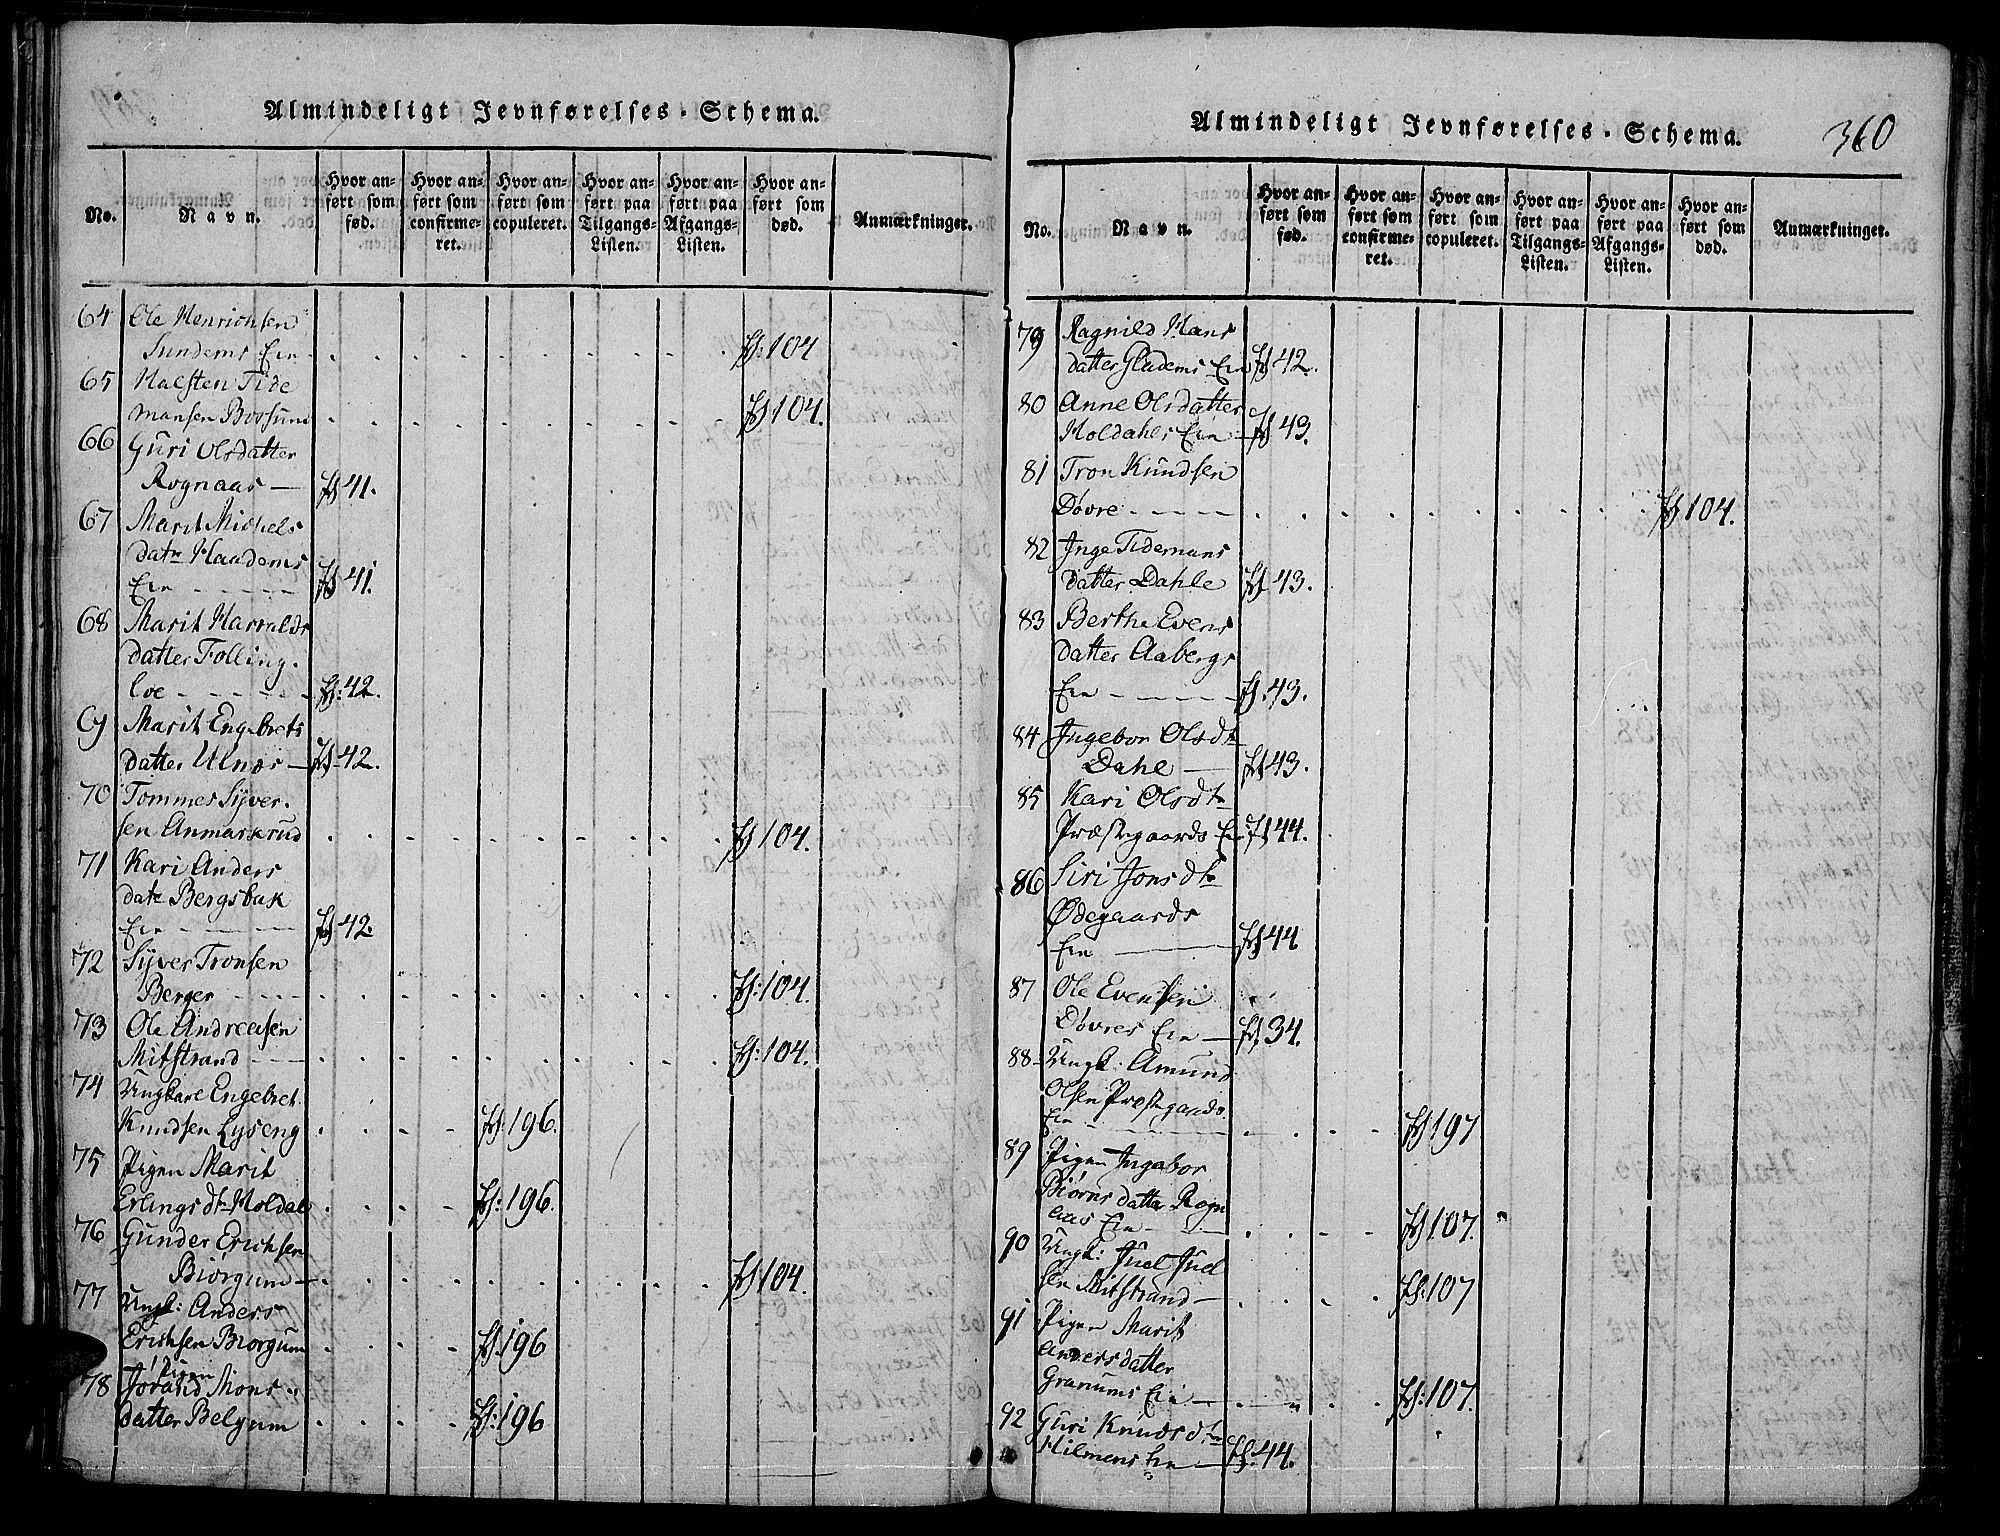 Almindeligt Jevnførelses-Schema.
No.
Navn.
Hvor anført som fød.
Hvor anført som confirmeret.
Hvor anført som copuleret.
Hvor anført paa Tilgangs-Listen.
Hvor anført paa Afgangs-Listen.
Hvor anført som død.
Anmærkninger.
64 Ole Henrichsen
Sundems Eie fs: 104
65 Halsten Tide
mansen Bossum fs 104.
66 Guri Olsdatter
Rognaas — fs 41.
67 Marit Michels
datr Haadems
Eie - - - - - fs 41.
68 Marit Harralds
datter Folling.
loe - - - - - fs: 42.
69 Marit Engebrets
datter Ulnæs — fs 42.
70 Tommes Syver.
sen Anmarkrud fs 104.
71 Kari Anders
datr Bergsbak
Eie - - - - fs 42.
72 Syver Tronsen
Berger - - - - fs: 104.
73 Ole Andreasen
Mitstrand - - - fs: 104.
74 Ungkarl Engebret
Knudsen Lyseng fs 196.
75 Pigen Marit
Erlings dtr Moldal fs: 196.
76 Gunder Erichsen
Biørgum — fs 104.
77 Ungk: Anders
Erichsen Biorgum fs. 196
Pigen
78 Jorand Mons
datter Belgum fs: 196
Almindeligt Jevnførelses-Schema.
360
No.
Navn.
Hvor anført som fød.
Hvor anført som confirmeret.
Hvor anført som copuleret.
Hvor anført paa Tilgangs-Listen.
Hvor anført paa Afgangs-Listen.
Hvor anført som død.
Anmærkninger.
79 Ragnild Hans
datter Gladems Eie fs 42.
80 Anne Olsdatter
Holdahls Eie — fs 43.
81 Tron Knudsen
Døvre - - - - - fs 104.
82 Inge Tidemans
datter Dahle fs 43.
83 Berthe Evens
datter Aabergs
Eie - - - - - fs. 43.
84 Ingebor Olsdtr
Dahl — fs 43.
85 Kari Olsdtr
Præstegaards Eie fs 44.
86 Siri Jonsdtr
Ødegaards
Eie — fs 44
87 Ole Evensen
Døvres Eie — fs 34.
88 Ungk: Amund
Olsen Præstegaards
Eie - - - - - fs 197
89 Pigen Ingebor
Biørns datter Rogn
aas Eie - fs 107.
90 Ungk: Juel Juel
sen Mitstrand — fs: 107
91 Pigen Marit
Andersdatter
Granums Eie — fs: 107.
92 Guri Knuds dtr
Hilmens Eie — fs. 44.